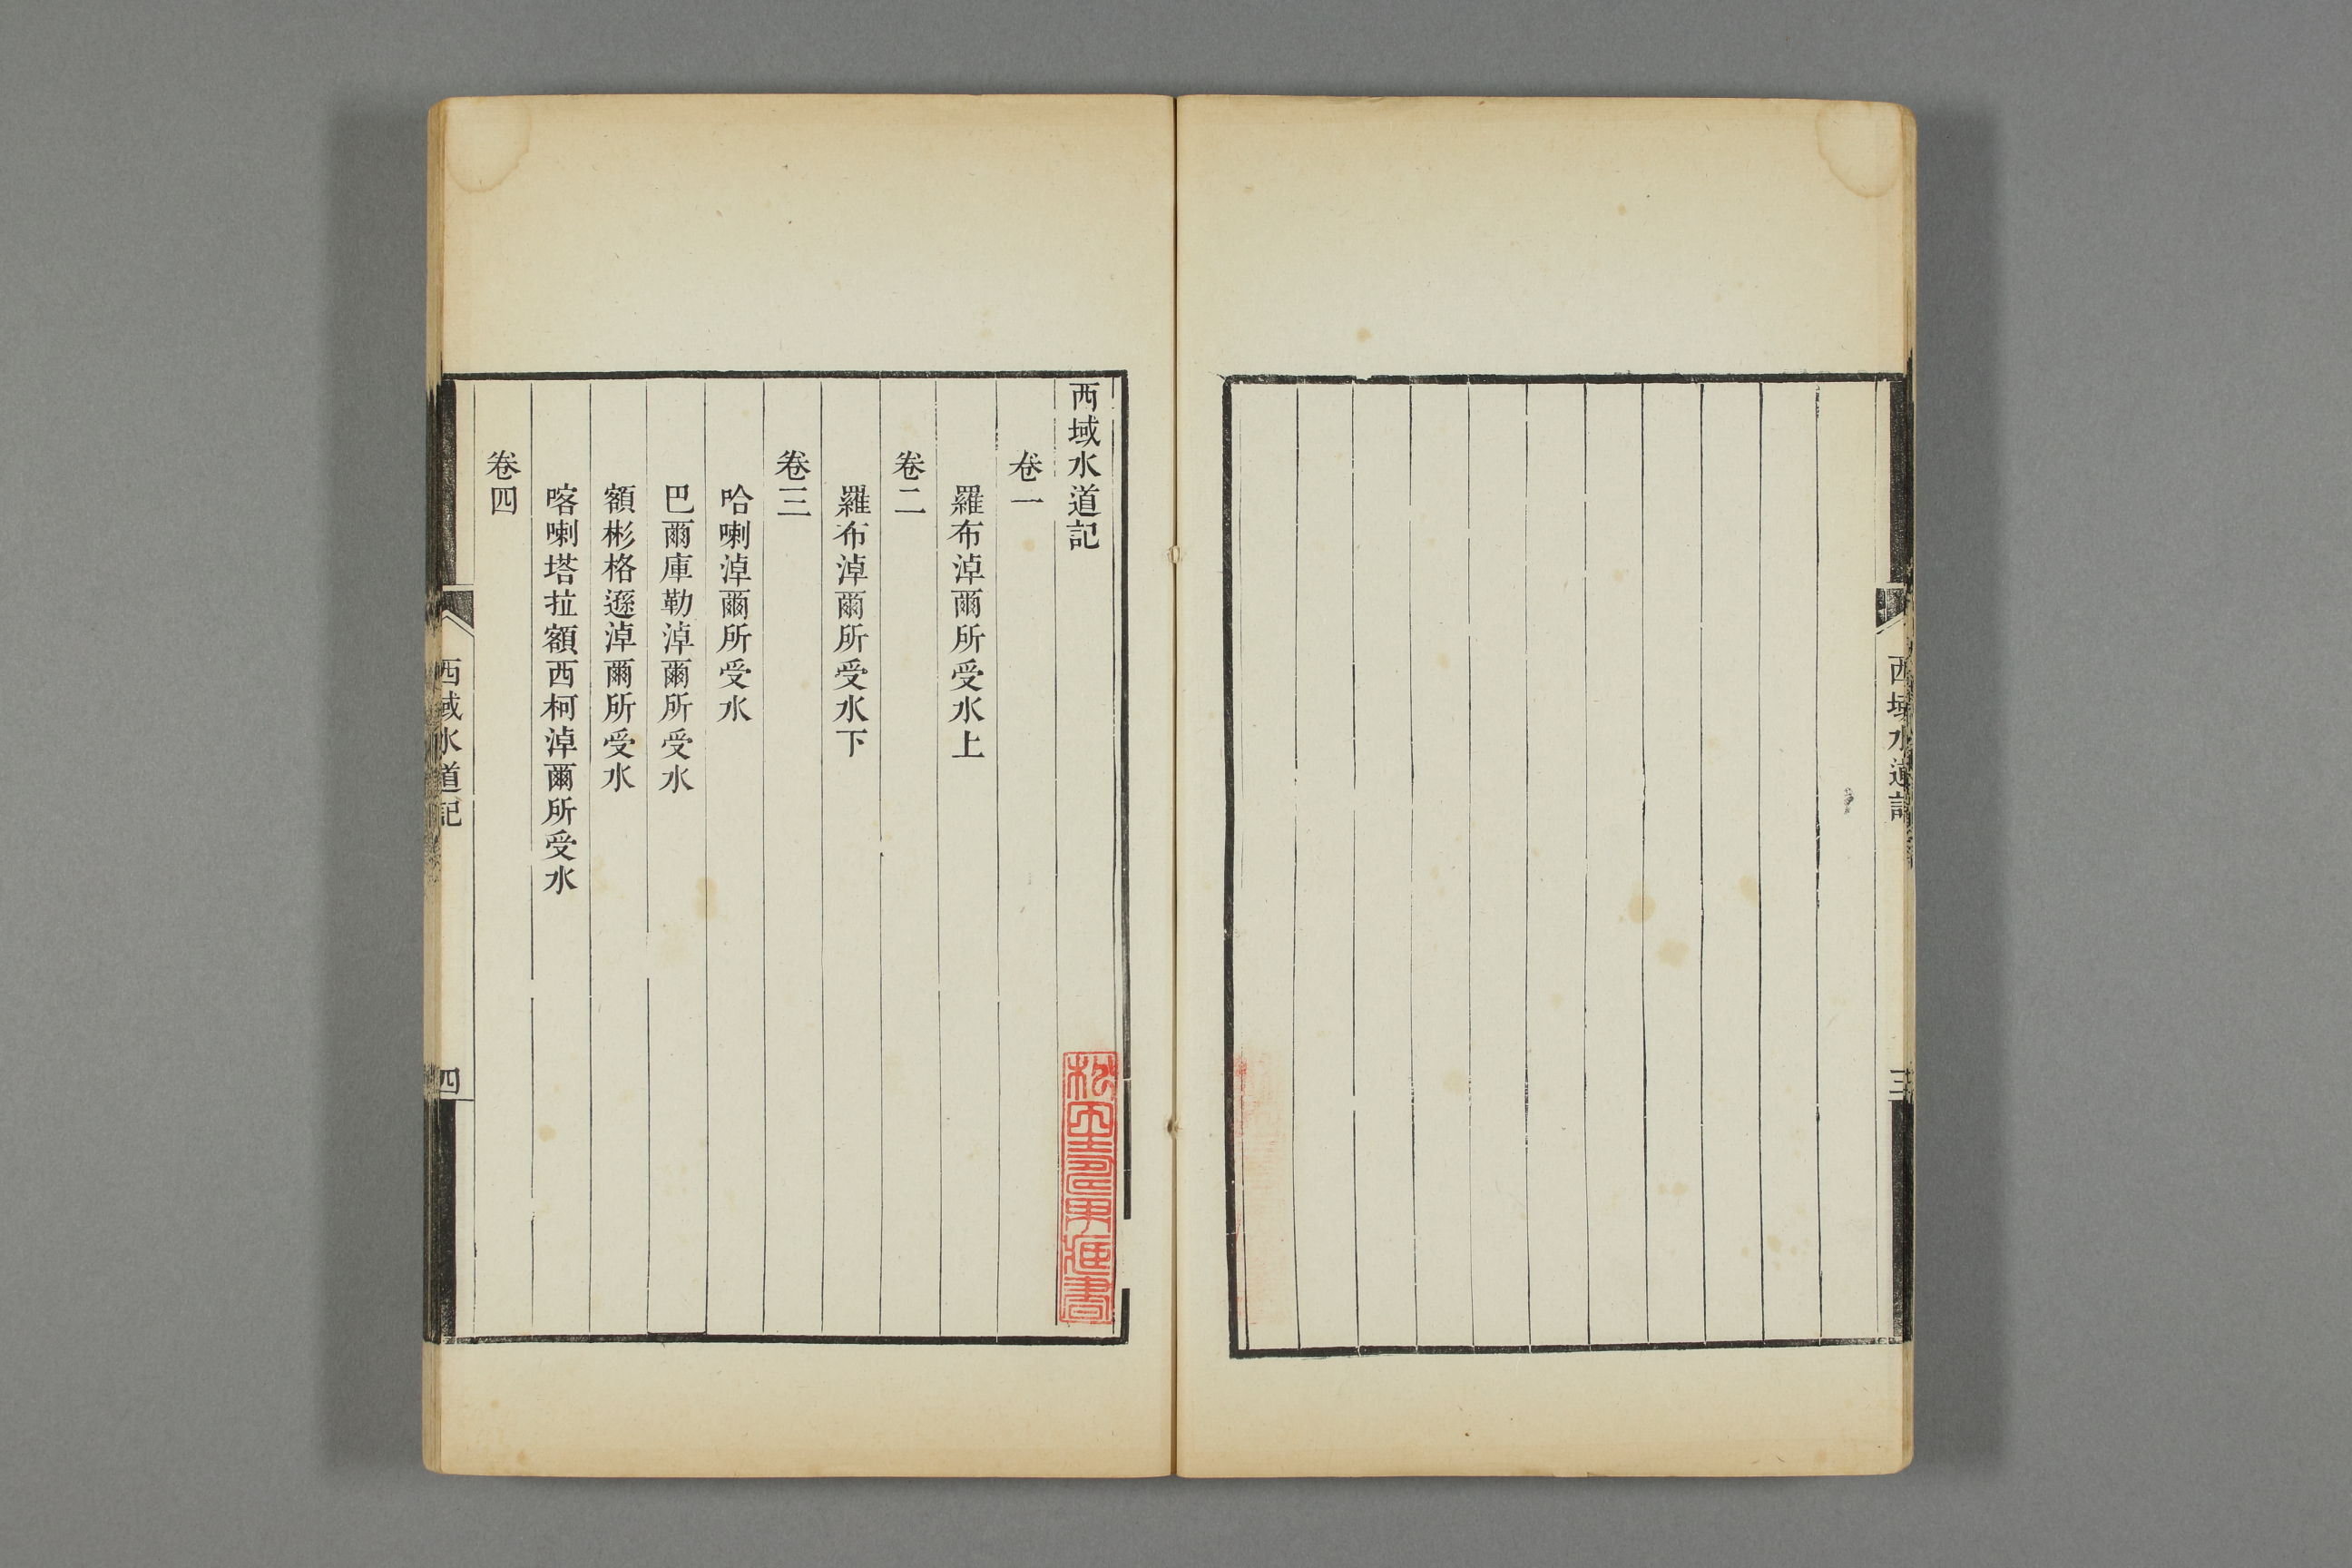 西域水道記
三
西域水道記
卷一
羅布淖爾所受水上
卷二
羅布淖爾所受水下
卷三
哈喇淖爾所受水
巴爾庫勒淖爾所受水
額彬格遜淖爾所受水
喀喇塔拉額西柯淖爾所受水
卷四
西域水道記
四